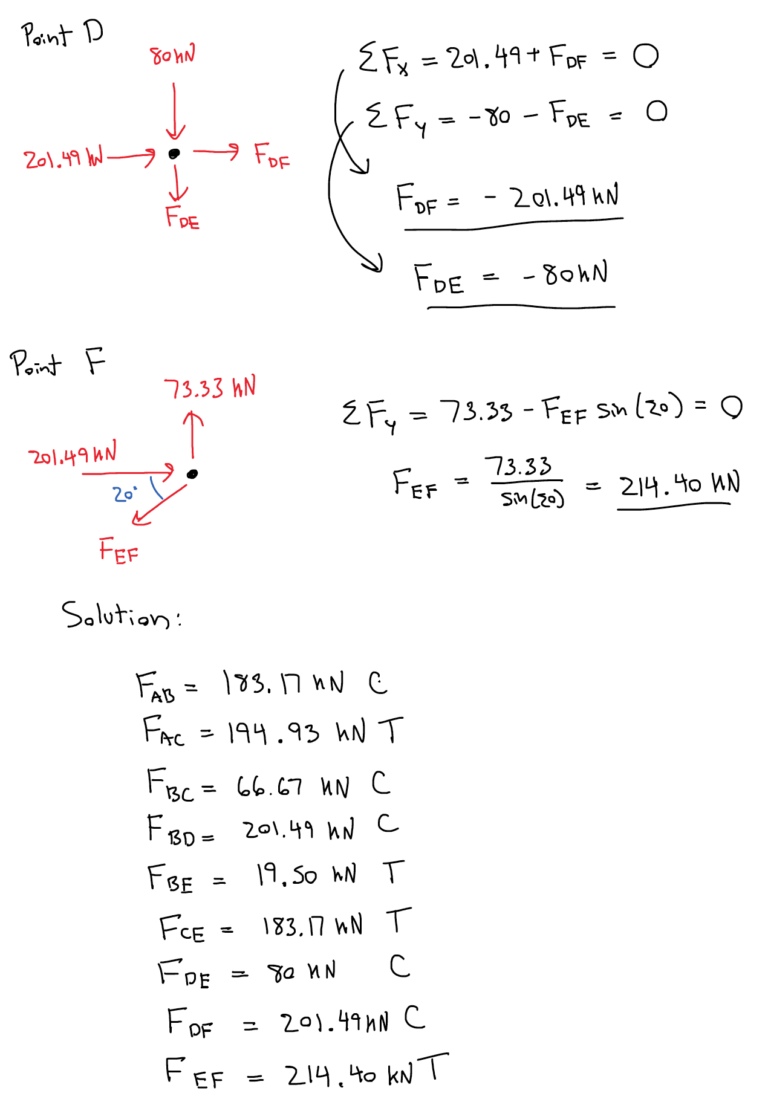 Point D
80 kN
201.49 kN
F_DF
F_DE
ΣF_x = 201.49 + F_DF = 0
ΣF_y = -80 - F_DE = 0
F_DF = - 201.49 kN
F_DE = - 80 kN
Point F
73.33 kN
201.49 kN
20°
F_EF
ΣF_y = 73.33 - F_EF sin(20) = 0
F_EF = 73.33 / sin(20) = 214.40 kN
Solution:
F_AB = 183.17 kN C
F_AC = 194.93 kN T
F_BC = 66.67 kN C
F_BD = 201.49 kN C
F_BE = 19.50 kN T
F_CE = 183.17 kN T
F_DE = 80 kN C
F_DF = 201.49 kN C
F_EF = 214.40 kN T